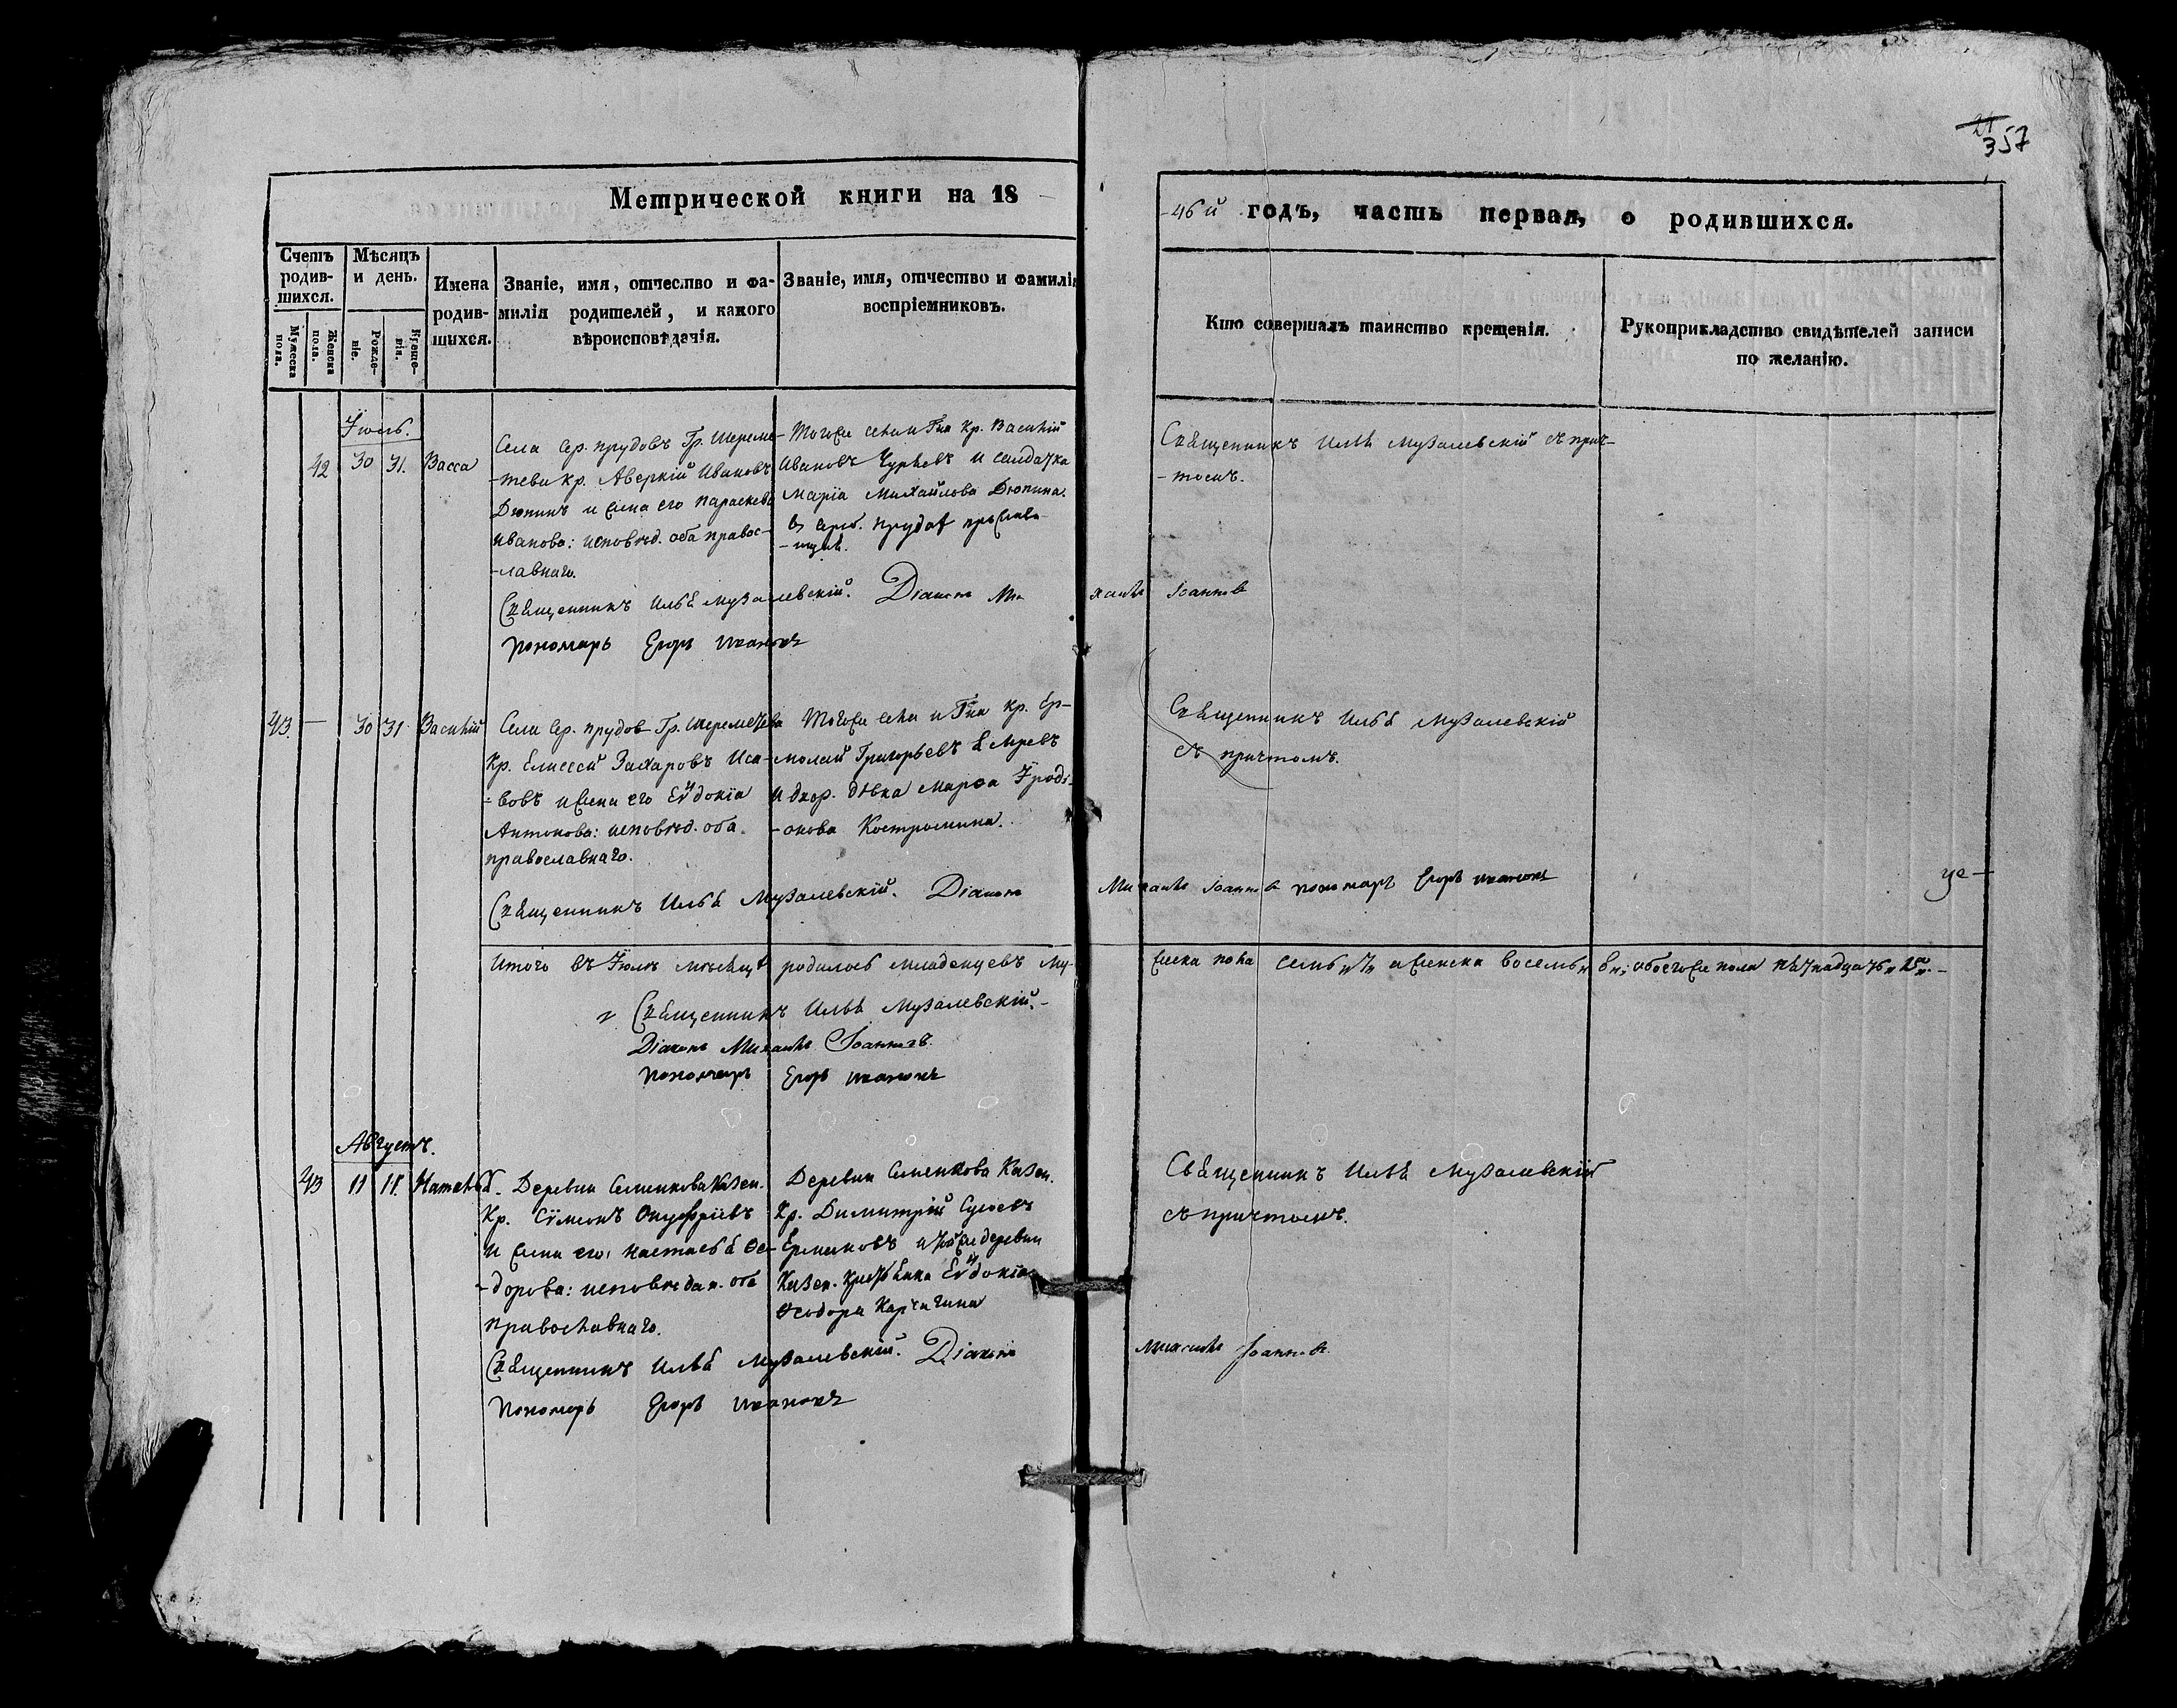 21
357
Метрической книги на 18
46й годъ, часть первая, о родившихся.
Счетъ родив-шихся.
Мужеска пола.
Женска пола.
Мѣсяцъ и день.
Рожде-ніе.
Креще-нія.
Имена родив-шихся.
Званіе, имя, отчество и фа-
милія родителей, и какого
вѣроисповѣдачія.
Званіе, имя, отчество и фамилія
воспріемниковъ.
Кто совершалъ таинство крещенія.
Рукоприкладство свидѣтелей записи
по желанію.
Іюль.
42 30 31. Васса
Села Сер. прудовъ Гр. Шереме-
-тева кр. Аверкій Ивановъ
Дюпинъ и жена его Параскева
Иванова: исповѣд. оба правос-
-лавнаго.
Тогоже села и Гна кр. Василій
Ивановъ Чурѣевъ и салдатка
Марія Михайлова Дюпина.
в Сереб. пруда
Священникъ Илья Музалевскій съ прич-
-томъ.
Священникъ Илья Музалевскій. Діаконъ Михаилъ Іоанновъ
Пономарь Егоръ Ивановъ
43. — 30 31 Василій
Села Сер. прудов Гр. Шереметева
Кр. Елисей Захаровъ Иса-
-вовъ и жена его Евдокіа
Антонова: исповѣд. оба
православнаго.
Тогоже села и Гна кр. Ер-
-молай Григорьевъ
и двор. дѣвка Марѳа Іроді-
-онова Костромина.
Священникъ Илья Музалевскій
съ причтомъ.
Священникъ Илья Музалевскій. Діаконъ Михаилъ Іоанновъ пономарь Егоръ Ивановъ
Итого въ Іюлѣ мѣсяцѣ родилось младенцевъ му-жеска пола семь „7„ а женска восемь „8„; обоегоже пола пятнадцать „15„. —
Священникъ Илья Музалевскій. —
Діаконъ Михаилъ Іоанновъ.
Пономарь Егоръ Ивановъ
Августъ.
43 11 11. Наталья.
Деревни Семенкова Казен.
Кр. Сѵмеонъ Онуфріевъ
и жена его Настасья Ѳе-
-дорова: исповѣдан. оба
православнаго.
Деревни Семенкова Казен.
Кр. Димитрій
Ермаковъ и тойже деревни
Казен. крестьянка Евдокіа
Ѳеодора Карчагина
Священникъ Илья Музалевскій
съ причтомъ.
Священникъ Илья Музалевскій. Діаконъ Михаилъ Іоанновъ.
Пономарь Егоръ Ивановъ